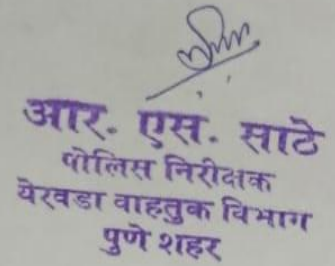 आर. एस. साठे
पोलिस निरीक्षक
येरवडा वाहतुक विभाग
पुणे शहर